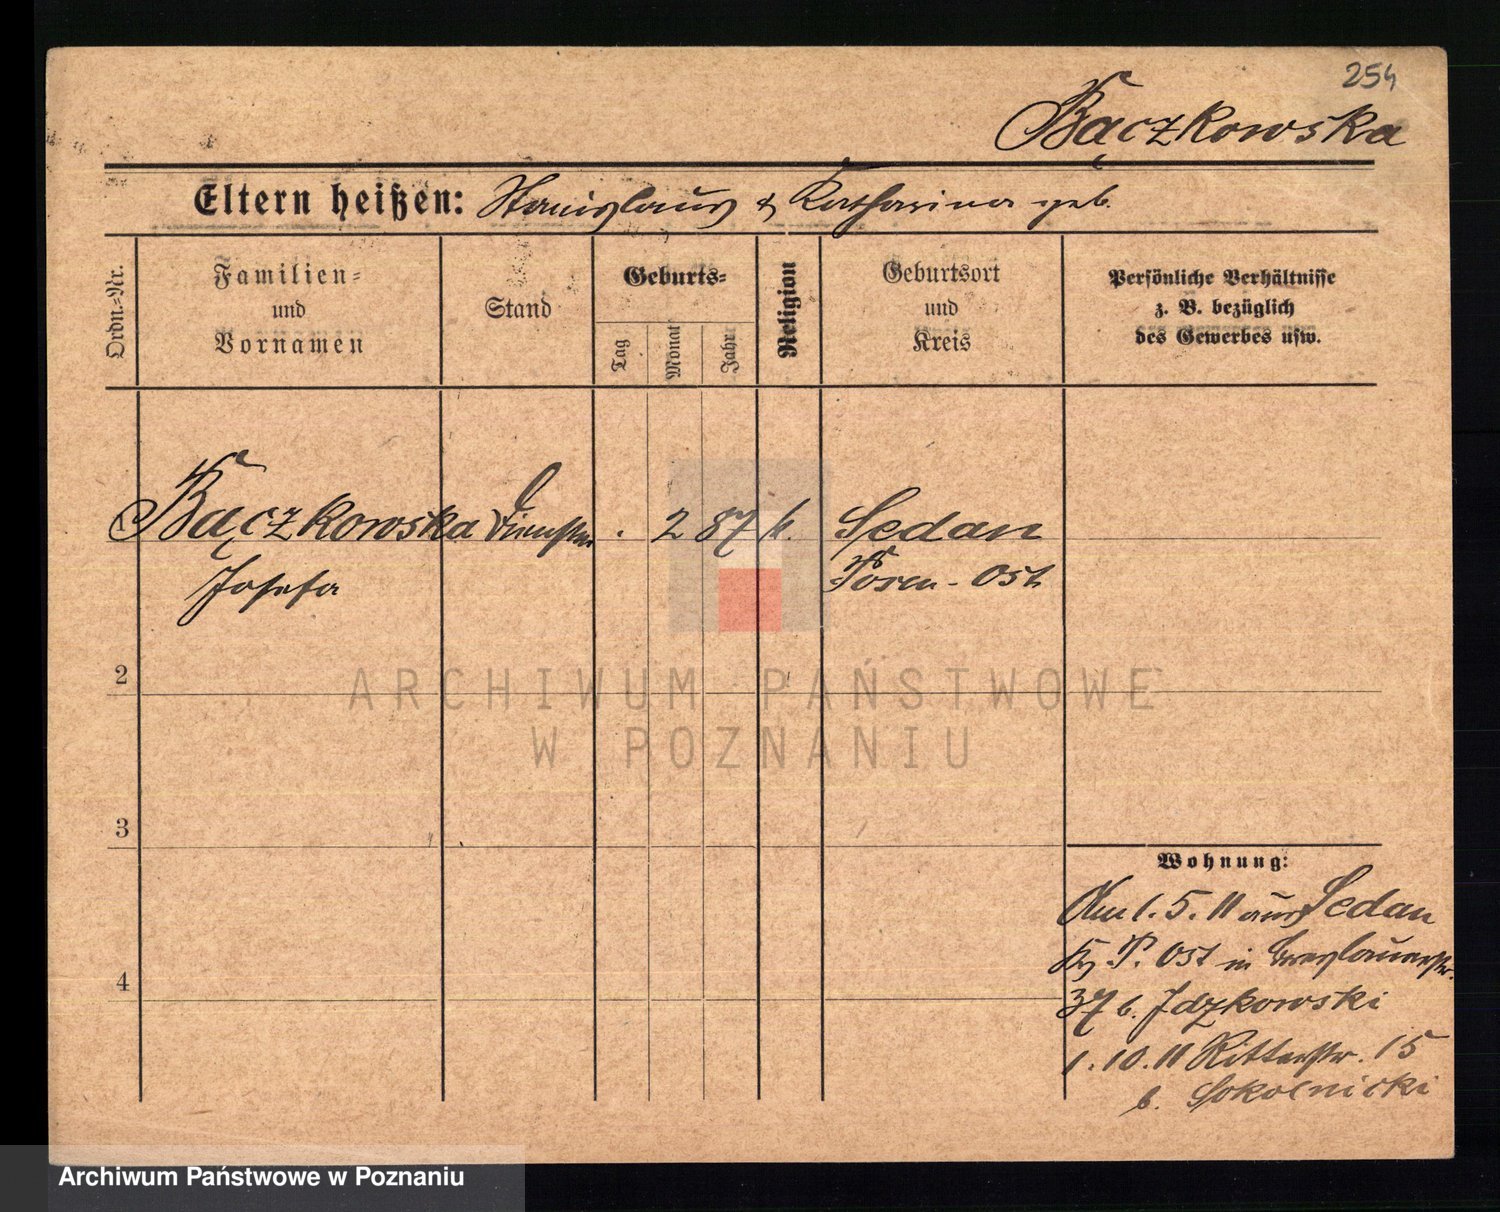 254
Bączkowska
Eltern heißen: Stanislaus & Katharina geb.
Ordn.=Nr.
Familien=
und
Vornamen
Stand
Geburts=
Tag
Monat
Jahr
Religion
Geburtsort
und
Kreis
Persönliche Verhältnisse
z. B. bezüglich
des Gewerbes usw.
1 Bączkowska . 2 87 k. Sedan
Josefa Posen - Ost
2
ARCHIWUM PAŃSTWOWE
W POZNANIU
3
4
Wohnung:
Am 1. 5. 11 aus Sedan
Krs P. Ost in Breslauerstr.
37 b. Idzkowski
1. 10. 11 Ritterstr. 15
b. Sokolnicki
Archiwum Państwowe w Poznaniu